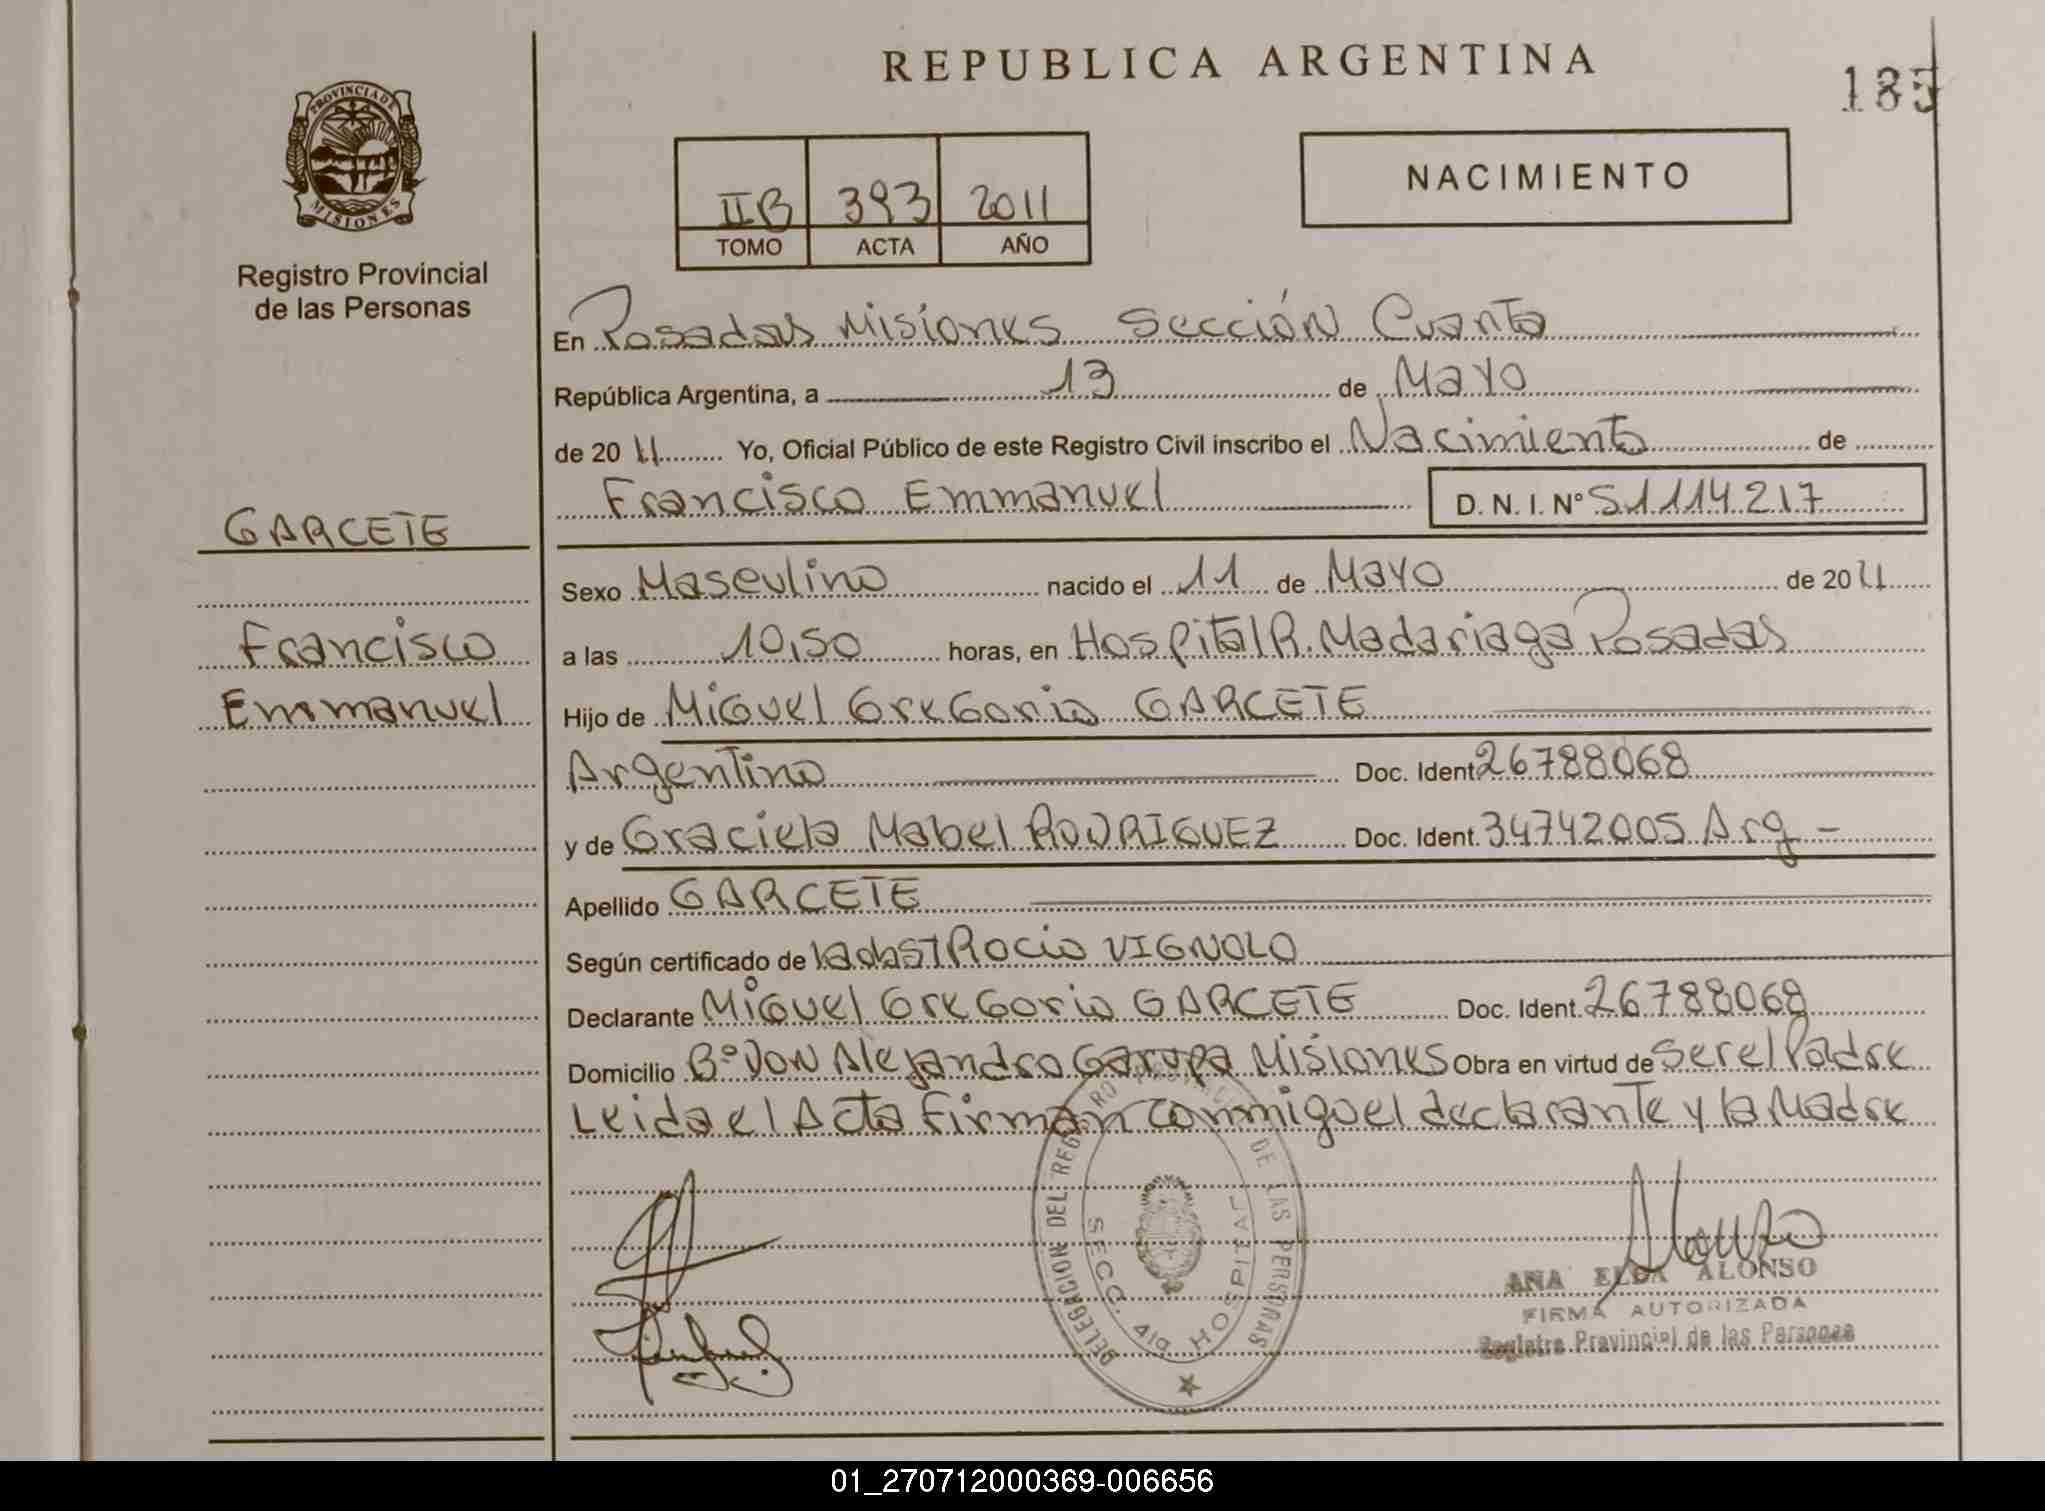 REPUBLICA ARGENTINA
185
PROVINCIA DE MISIONES
Registro Provincial
de las Personas
IIB 393 2011
TOMO ACTA AÑO
NACIMIENTO
En Posadas Misiones Sección Cuarta
República Argentina, a 13 de Mayo
de 2011 Yo, Oficial Público de este Registro Civil inscribo el Nacimiento de
Francisco Emmanuel D. N. I. Nº 51114217
GARCETE
Francisco
Emmanuel
Sexo Masculino nacido el 11 de Mayo de 2011
a las 10,50 horas, en Hospital R. Madariaga Posadas
Hijo de Miguel Gregorio GARCETE
Argentino Doc. Ident 26788068
y de Graciela Mabel RODRIGUEZ Doc. Ident. 34742005 Arg -
Apellido GARCETE
Según certificado de la obst Rocio VIGNOLO
Declarante Miguel Gregorio GARCETE Doc. Ident. 26788068
Domicilio Bº DON Alejandro Garupa Misiones Obra en virtud de ser el Padre
Leida el Acta Firman conmigo el declarante y la Madre
DELEGACION DEL REGISTRO PROVINCIAL DE LAS PERSONAS
SECC. 4ta HOSPITAL
ANA ELDA ALONSO
FIRMA AUTORIZADA
Registro Provincial de las Personas
01_270712000369-006656